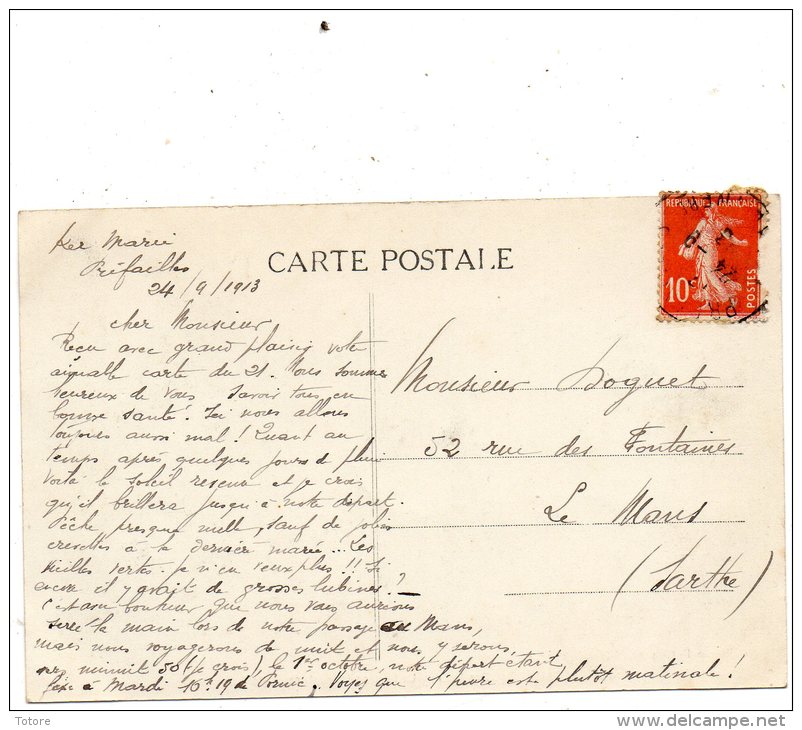 Ker Marie
Préfailles
24/9/1913
CARTE POSTALE
REPUBLIQUE FRANÇAISE
10
POSTES
cher Monsieur
Reçu avec grand plaisir votre
aimable carte du 21. Nous sommes
heureux de vous savoir tous en
bonne santé. Ici nous allons
toujours aussi mal ! Quant au
temps après quelques jours de pluie
voilà le soleil revenu et je crois
qu'il brillera jusqu'à notre départ.
Pêche presque nulle, sauf de jolies
crevettes à la dernière marée... Les
vieilles vertes je n'en veux plus !! Si
encore il y avait de grosses lubines ?
C'est avec bonheur que nous vous aurions
serré la main lors de notre passage au Mans,
mais nous voyagerons de nuit et nous y serons,
vers minuit 50 (je crois), le 1er octobre, notre départ étant
fixé à Mardi 10h.19 de Pornic. Voyez que l'heure est plutôt matinale !
Monsieur Doguet
52 rue des Fontaines
Le Mans
(Sarthe)
Totore
www.delcampe.net